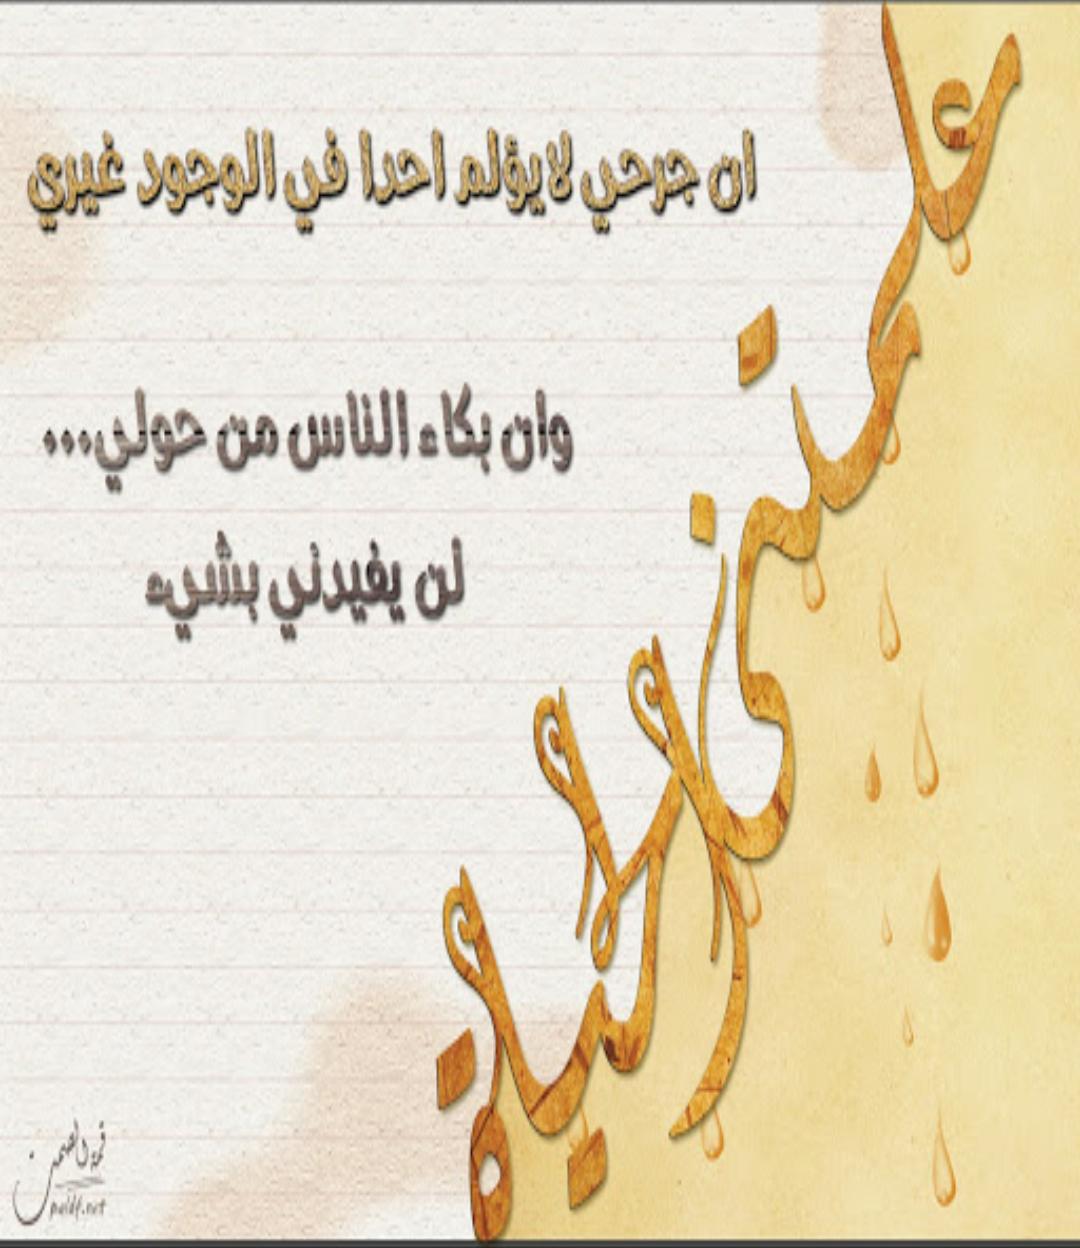 علمتني الحياة
ان جرحي لايؤلم احدا في الوجود غيري
وان بكاء الناس من حولي...
لن يفيدني بشيء
قمة الصمت